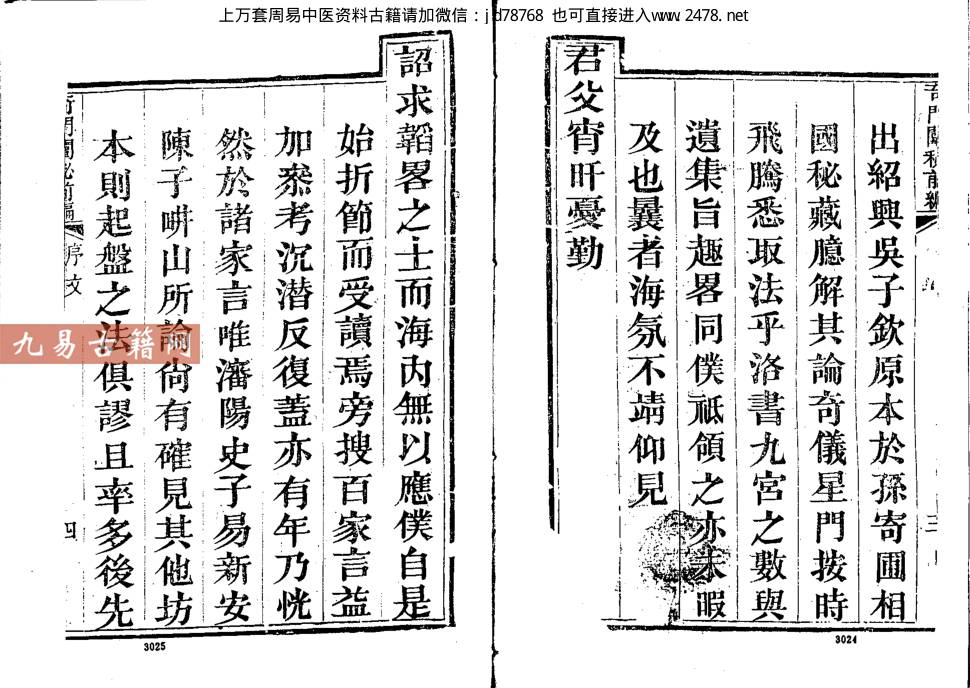 上万套周易中医资料古籍请加微信：jyd78768 也可直接进入www.2478.net
出紹興吳子欽原本於孫寄圃相
國秘藏臆解其論奇儀星門按時
飛騰悉取法乎洛書九宮之數與
遺集旨趣畧同僕祗領之亦未暇
及也曩者海氛不靖仰見
君父宵旰憂勤
3024
詔求韜畧之士而海內無以應僕自是
始折節而受讀焉旁搜百家言益
加叅考沉潛反復蓋亦有年乃恍
然於諸家言唯瀋陽史子易新安
陳子畊山所論尙有確見其他坊
本則起盤之法俱謬且率多後先
序文
四
3025
九易古籍网